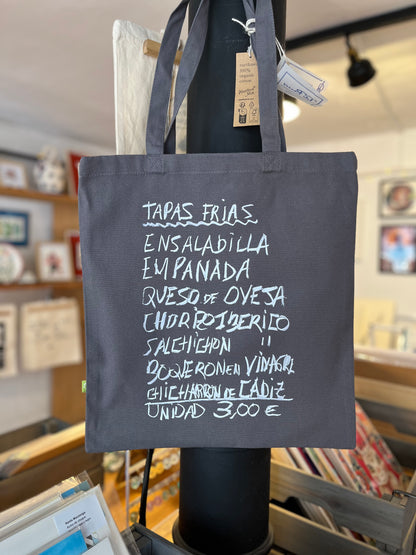 TAPAS FRIAS
ENSALADILLA
EMPANADA
QUESO DE OVEJA
CHORIZO IBERICO
SALCHICHON "
BOQUERON EN VINAGRE
CHICHARRON DE CADIZ
UNIDAD 3,00 €